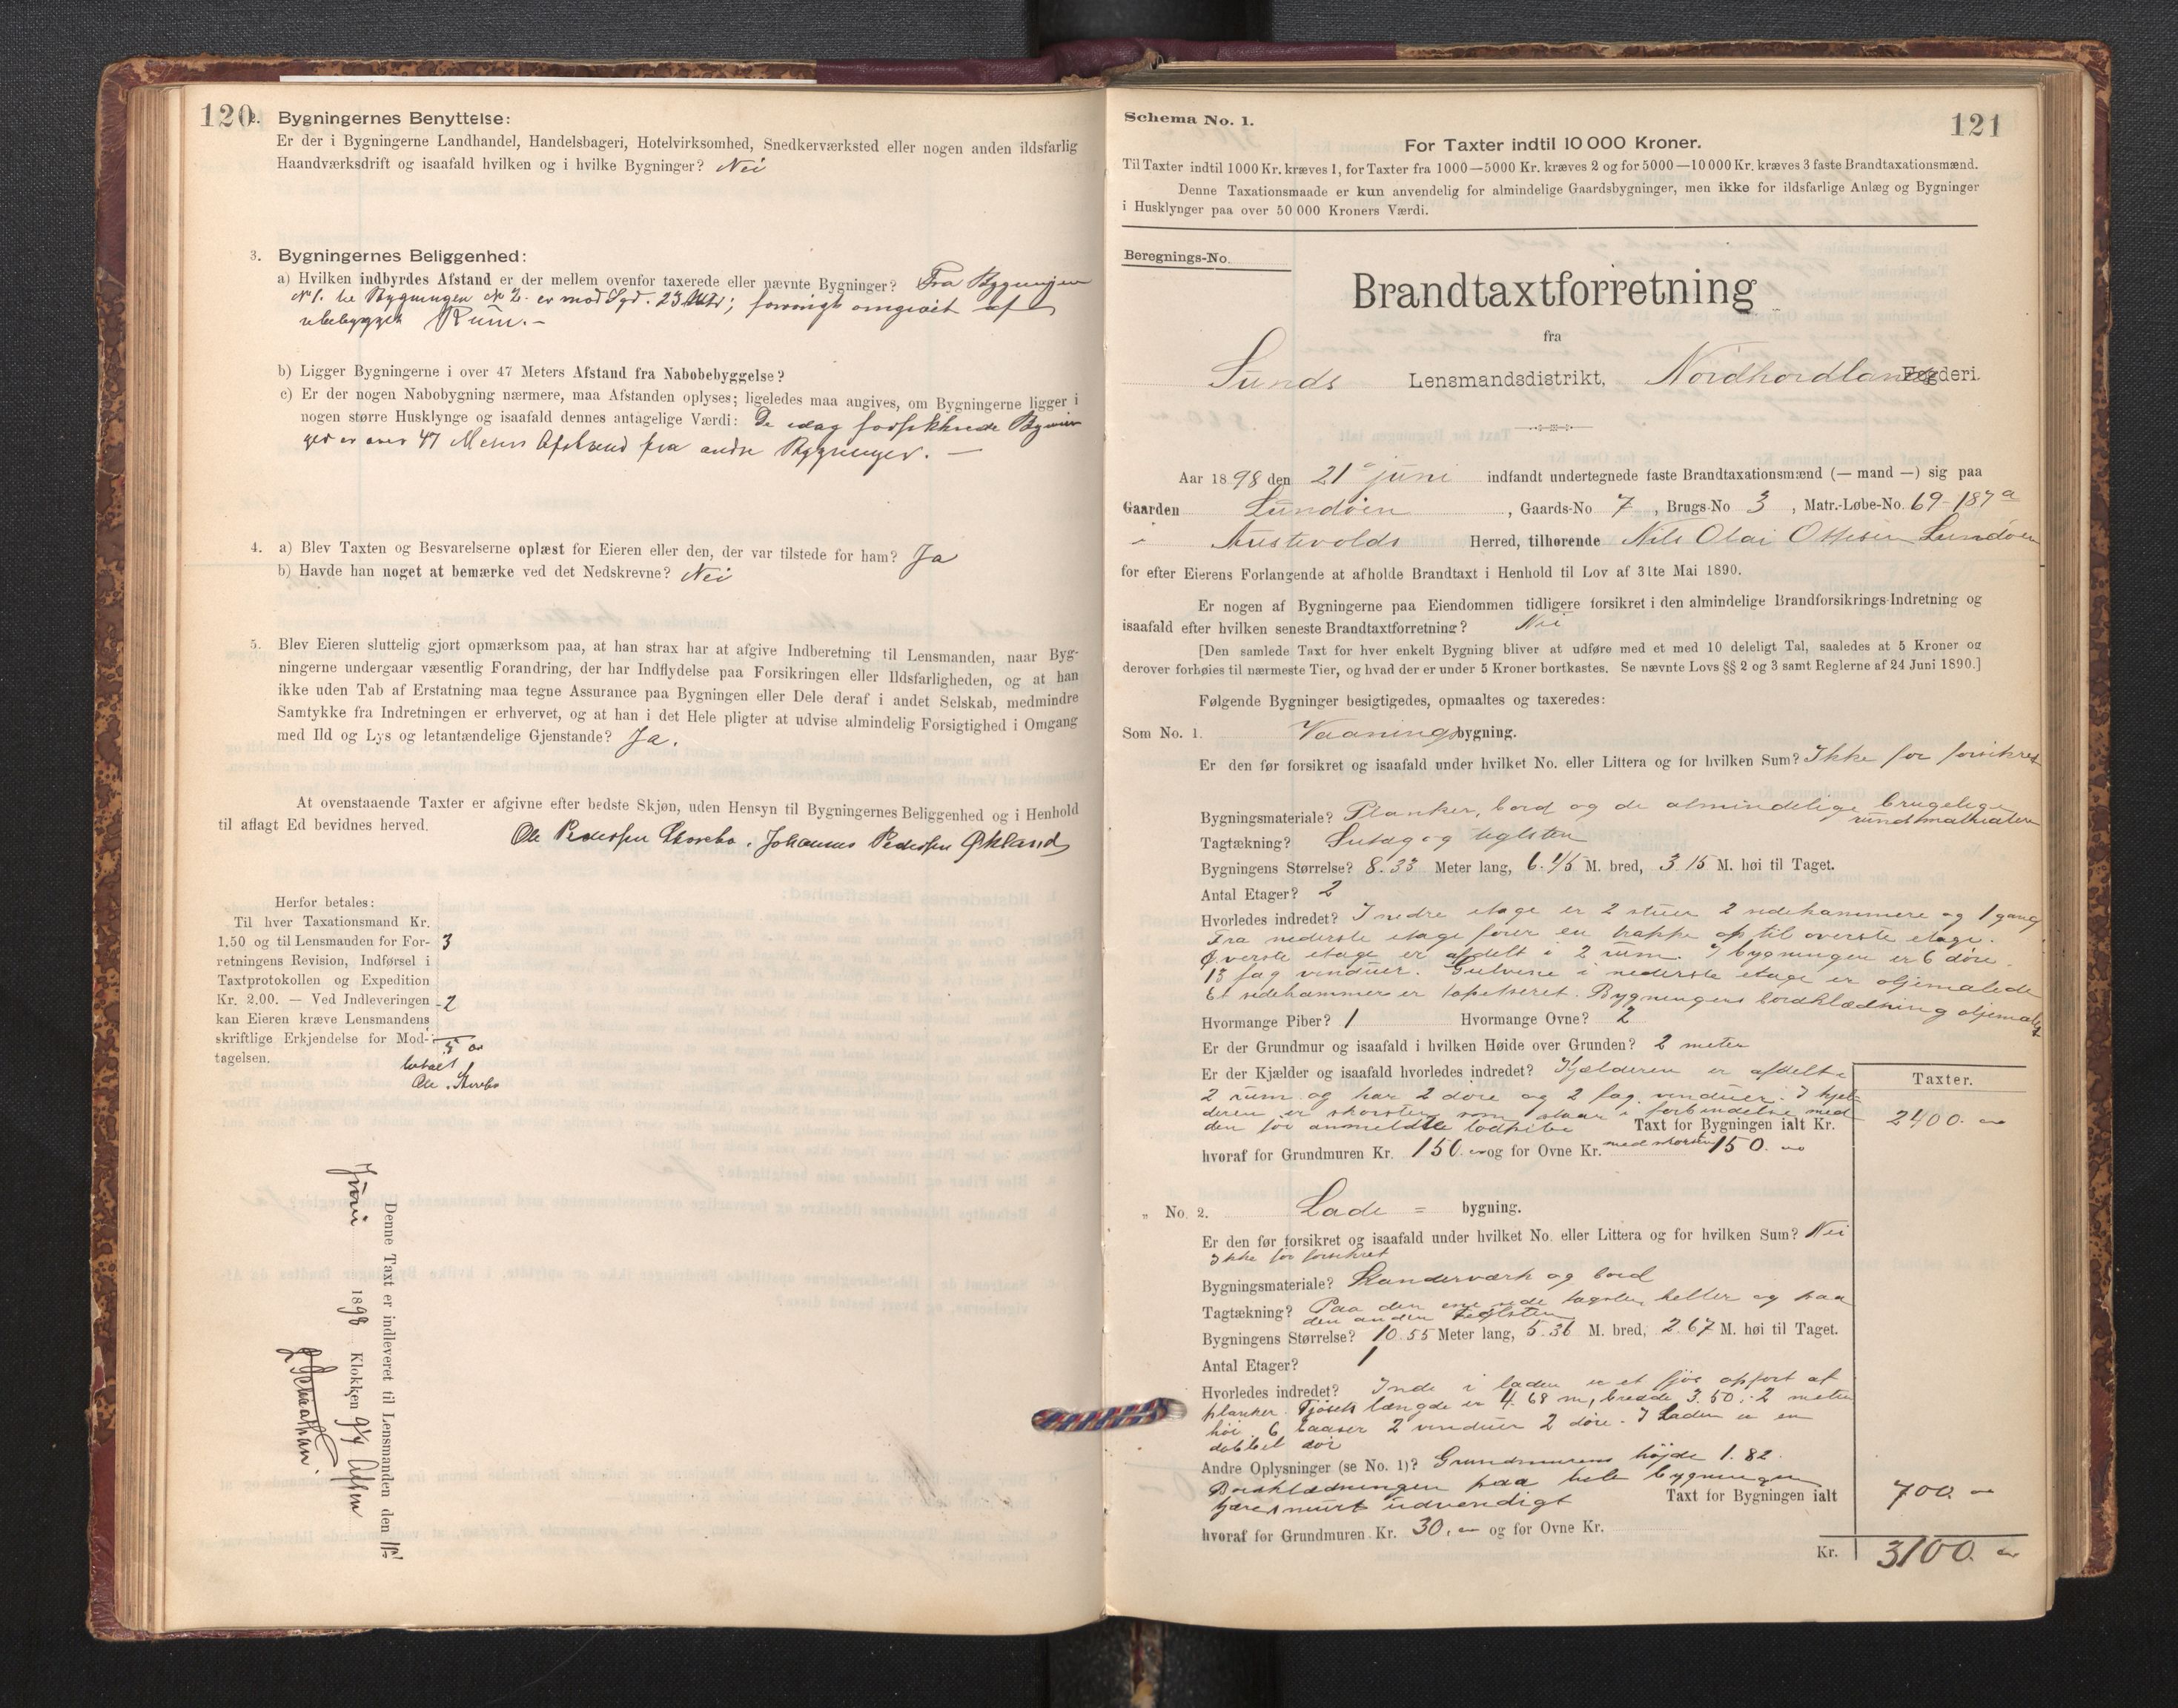 120
2. Bygningernes Benyttelse:
Er der i Bygningerne Landhandel, Handelsbageri, Hotelvirksomhed, Snedkerværksted eller nogen anden ildsfarlig
Haandværksdrift og isaafald hvilken og i hvilke Bygninger? Nei
3. Bygningernes Beliggenhed:
a) Hvilken indbyrdes Afstand er der mellem ovenfor taxerede eller nævnte Bygninger? Fra Bygningen
No 1. til Bygningen No 2. er mod Syd. 23 Mtr; forøvrigt omgivet af
ubebygget Rum. –
b) Ligger Bygningerne i over 47 Meters Afstand fra Nabobebyggelse?
c) Er der nogen Nabobygning nærmere, maa Afstanden oplyses; ligeledes maa angives, om Bygningerne ligger i
nogen større Husklynge og isaafald dennes antagelige Værdi: De idag forsikkrede Bygnin
ger er over 47 Meters Afstand fra andre Bygninger. —
4. a) Blev Taxten og Besvarelserne oplæst for Eieren eller den, der var tilstede for ham? Ja
b) Havde han noget at bemærke ved det Nedskrevne? Nei
5. Blev Eieren sluttelig gjort opmærksom paa, at han strax har at afgive Indberetning til Lensmanden, naar Byg-
ningerne undergaar væsentlig Forandring, der har Indflydelse paa Forsikringen eller Ildsfarligheden, og at han
ikke uden Tab af Erstatning maa tegne Assurance paa Bygningen eller Dele deraf i andet Selskab, medmindre
Samtykke fra Indretningen er erhvervet, og at han i det Hele pligter at udvise almindelig Forsigtighed i Omgang
med Ild og Lys og letantændelige Gjenstande? Ja.
At ovenstaaende Taxter er afgivne efter bedste Skjøn, uden Hensyn til Bygningernes Beliggenhed og i Henhold
til aflagt Ed bevidnes herved.
Ole Pedersen Storebø. Johannes Pedersen Økland
Herfor betales:
Til hver Taxationsmand Kr.
1.50 og til Lensmanden for For- 3
retningens Revision, Indførsel i
Taxtprotokollen og Expedition
Kr. 2.00. — Ved Indleveringen - 2
kan Eieren kræve Lensmandens
skriftlige Erkjendelse for Mod- 5
tagelsen.
betalt
Ole Storebø
Denne Taxt er indleveret til Lensmanden den
Juni 1898 Klokken Aften
Schema No. 1.
121
For Taxter indtil 10 000 Kroner.
Til Taxter indtil 1000 Kr. kræves 1, for Taxter fra 1000—5000 Kr. kræves 2 og for 5000—10 000 Kr. kræves 3 faste Brandtaxationsmænd.
Denne Taxationsmaade er kun anvendelig for almindelige Gaardsbygninger, men ikke for ildsfarlige Anlæg og Bygninger
i Husklynger paa over 50 000 Kroners Værdi.
Beregnings-No.
Brandtaxtforretning
fra
Sunds Lensmandsdistrikt, Nordhordlands Fogderi.
Aar 1898 den 21 juni indfandt undertegnede faste Brandtaxationsmænd (— mand —) sig paa
Gaarden Lundøen, Gaards-No 7, Brugs-No 3, Matr.-Løbe-No. 69-187a
i Austevolds Herred, tilhørende Nils Olai Ottesen Lundøen
for efter Eierens Forlangende at afholde Brandtaxt i Henhold til Lov af 31te Mai 1890.
Er nogen af Bygningerne paa Eiendommen tidligere forsikret i den almindelige Brandforsikrings-Indretning og
isaafald efter hvilken seneste Brandtaxtforretning? Nei
[Den samlede Taxt for hver enkelt Bygning bliver at udføre med et med 10 deleligt Tal, saaledes at 5 Kroner og
derover forhøies til nærmeste Tier, og hvad der er under 5 Kroner bortkastes. Se nævnte Lovs §§ 2 og 3 samt Reglerne af 24 Juni 1890.]
Følgende Bygninger besigtigedes, opmaaltes og taxeredes:
Som No. 1. Vaaningsbygning.
Er den før forsikret og isaafald under hvilket No. eller Littera og for hvilken Sum? Ikke før forsikret
Bygningsmateriale? Planker, bord og de almindelige brugelige
rundtmaterialer
Tagtækning? Sutag og teglsten
Bygningens Størrelse? 8.33 Meter lang, 6.45 M. bred, 3 15 M. høi til Taget.
Antal Etager? 2
Hvorledes indredet? I nedre etage er 2 stuer 2 sidekammere og 1 gang
Fra nederste etage fører en trappe op til øverste etage.
Øverste etage er afdelt i 2 rum. I bygningen er 6 døre
13 fag vinduer. Gulvene i nederste etage er oljemalede
Et sidekammer er tapetseret. Bygningens bordklædning oljemalet
Hvormange Piber? 1 Hvormange Ovne? 2
Er der Grundmur og isaafald i hvilken Høide over Grunden? 2 meter
Er der Kjælder og isaafald hvorledes indredet? Kjælderen er afdelt i
2 rum og har 2 døre og 2 fag vinduer. I kjel-
deren er skorsten som staar i forbindelse med
den før anmeldte lodpibe Taxt for Bygningen ialt Kr.
Taxter.
2400.
hvoraf for Grundmuren Kr. 150. og for Ovne Kr. med skorsten 150.
„ No. 2. Lade = bygning.
Er den før forsikret og isaafald under hvilket No. eller Littera og for hvilken Sum? Nei
Ikke før forsikret
Bygningsmateriale? Standerværk og bord
Tagtækning? Paa den ene side tagsten heller og paa
den anden teglsten
Bygningens Størrelse? 10.55 Meter lang, 5.36 M. bred, 2.67 M. høi til Taget.
Antal Etager? 1
Hvorledes indredet? Inde i laden er et fjøs opført af
planker. Fjøsets længde er 4 68 m, bredde 3.50. 2 meter
høi. 6 baaser 2 vinduer 2 døre. I Laden er en
dobbel dør
Andre Oplysninger (se No. 1)? Grundmurens højde 1.82.
Bordklædningen paa hele bygningen
tjæresmurt udvendigt Taxt for Bygningen ialt 700.
hvoraf for Grundmuren Kr. 30. og for Ovne Kr.
Kr. 3100.